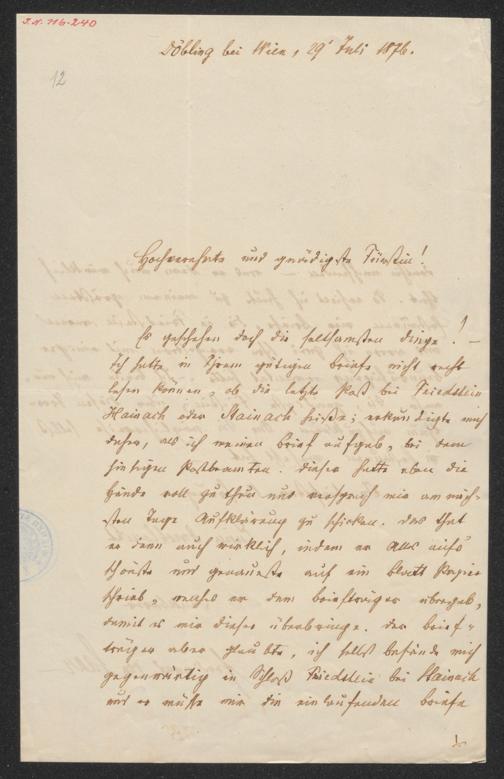 I.N. 116.240
12
Döbling bei Wien, 29' Juli 1876.
Hochverehrte und gnädigste Fürstin!
Es geschehen doch die seltsamsten Dinge! –
Ich hatte in Ihrem gütigen Briefe nicht recht
lesen können, ob die letzte Post bei Friedstein
Hainach oder Stainach heiße; erkundigte mich
daher, als ich meinen Brief aufgab, bei dem
hiesigen Postbeamten. Dieser hatte eben die
Hände voll zu thun und versprach mir am näch-
sten Tage Aufklärung zu schicken. Das that
er denn auch wirklich, indem er Alles aufs
schönste und genaueste auf ein Blatt Papier
schrieb, welches er dem Briefträger übergab,
damit es mir dieser überbringe. Der Brief-
träger aber glaubte, ich selbst befände mich
gegenwärtig in Schloß Friedstein bei Stainach
und er müsse mir die einlaufenden Briefe